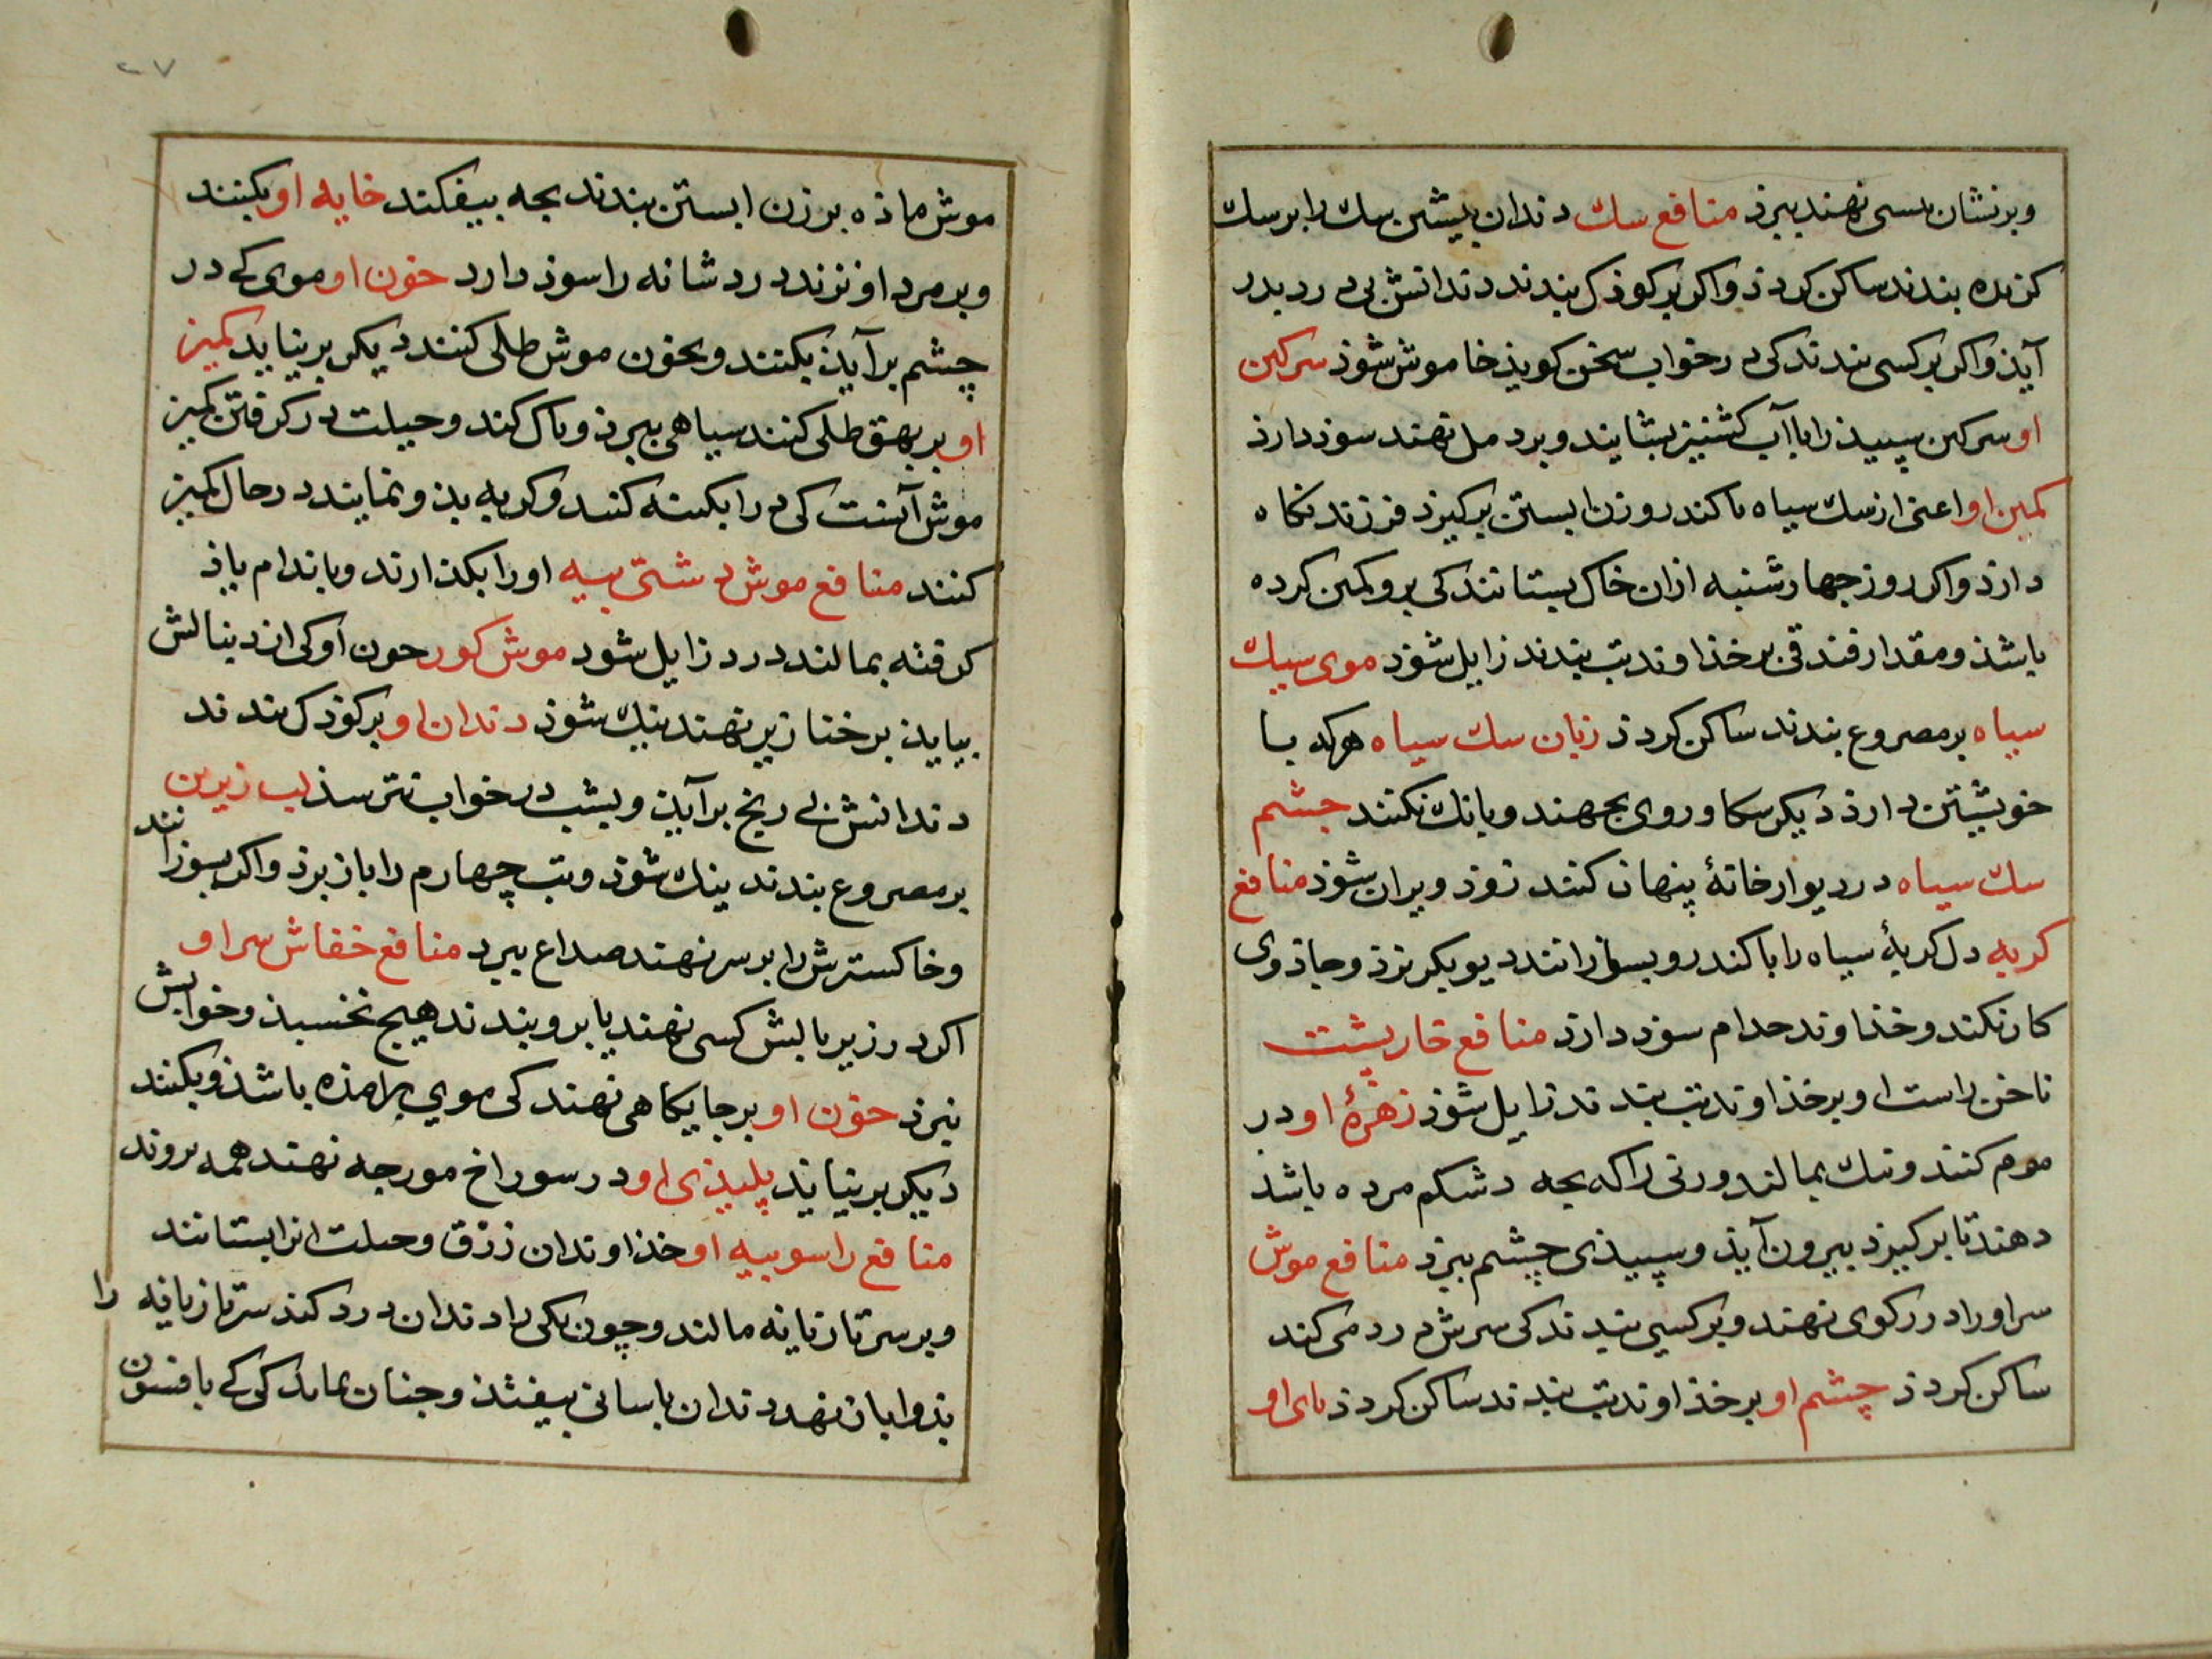 وبرنشان پیسی نهند ببرذ منافع سك دندان پیشین سك را بر سك
کزنده بندند ساکن کردذ واکر بر کوذک بندند دندانش بی درد بدر
آیذ واکر بر کسی بندند کی در خواب سخن کویذ خاموش شوذ سرکین
او سرکین سپیذ را با آب کشنیز بشایند وبر دمل نهند سوذ دارذ
کمیز او اعنی از سك سیاه با کندر وزن ابستن برکیرذ فرزند نکاه
دارذ واکر روز چهارشنبه ازان خاک بستانند کی برو کمیز کرده
باشذ ومقدار فندقی بر خذاوند تب بندند زایل شوذ موی سك
سیاه بر مصروع بندند ساکن کردذ زبان سك سیاه هرکه با
خویشتن دارذ دیکر سکا وروی بجهند وبانك نکنند چشم
سك سیاه در دیوار خانۀ پنهان کنند زوذ ویران شوذ منافع
کربه دل کربۀ سیاه را با کندر وبسوزانند دیو بکریزذ وجاذوی
کار نکند وخذاوند جذام سوذ دارذ منافع خارپشت
ناخن راست او بر خذاوند تب بندند زایل شوذ زهرۀ او در
موم کنند ونیك بمالند وزنی را که بچه در شکم مرده باشذ
دهند تا برکیرذ بیرون آیذ وسپیذی چشم ببرذ منافع موش
سر او را در رکوی نهند وبر کسی بندند کی سرش درد می کند
ساکن کردذ چشم او بر خذاوند تب بندند ساکن کردذ پای او
۲۷
موش ماذه بر زن ابستن بندند بچه بیفکند خایه او بکنند
وبر مرد اوفزند درد شانه را سوذ دارد خون او موی کی در
چشم برآیذ بکنند وبخون موش طلی کنند دیکر برنیاید کمیز
او بر بهق طلی کنند سیاهی ببرذ وپاک کند وحیلت در کرفتن کمیز
موش آنست کی در را بکسته کنند وکربه بذو نمایند در حال کمیز
کنند منافع موش دشتی پیه او را بکذارند وباندام باذ
کرفته بمالند درد زایل شود موش کور خون او کی از دنبالش
بیایذ بر خنازیر نهند نیك شوذ دندان او بر کوذک بندند
دندانش بی رنج برآیذ وبشب در خواب نترسذ لب زیرین
بر مصروع بندند نیك شوذ وتب چهارم را باز برذ واکر بسوزانند
وخاکسترش را بر سر نهند صداع ببرد منافع خفاش سر او
اکر در زیر بالش کسی نهند یا برو بندند هیچ نخسبذ وخوابش
نبرذ خون او بر جایکاهی نهند کی موی برامذه باشذ وبکنند
دیکر برنیاید پلیذی او در سوراخ مورچه نهند همه بروند
منافع راسو پیه او خذاوندان زرق وحیلت انرا بستانند
وبر سر تازیانه مالند وچون یکی را دندان درد کند سر تازیانه را
بذو ایان نهد دندان باسانی بیفتذ وچنان نمایذ کی کی بافسون